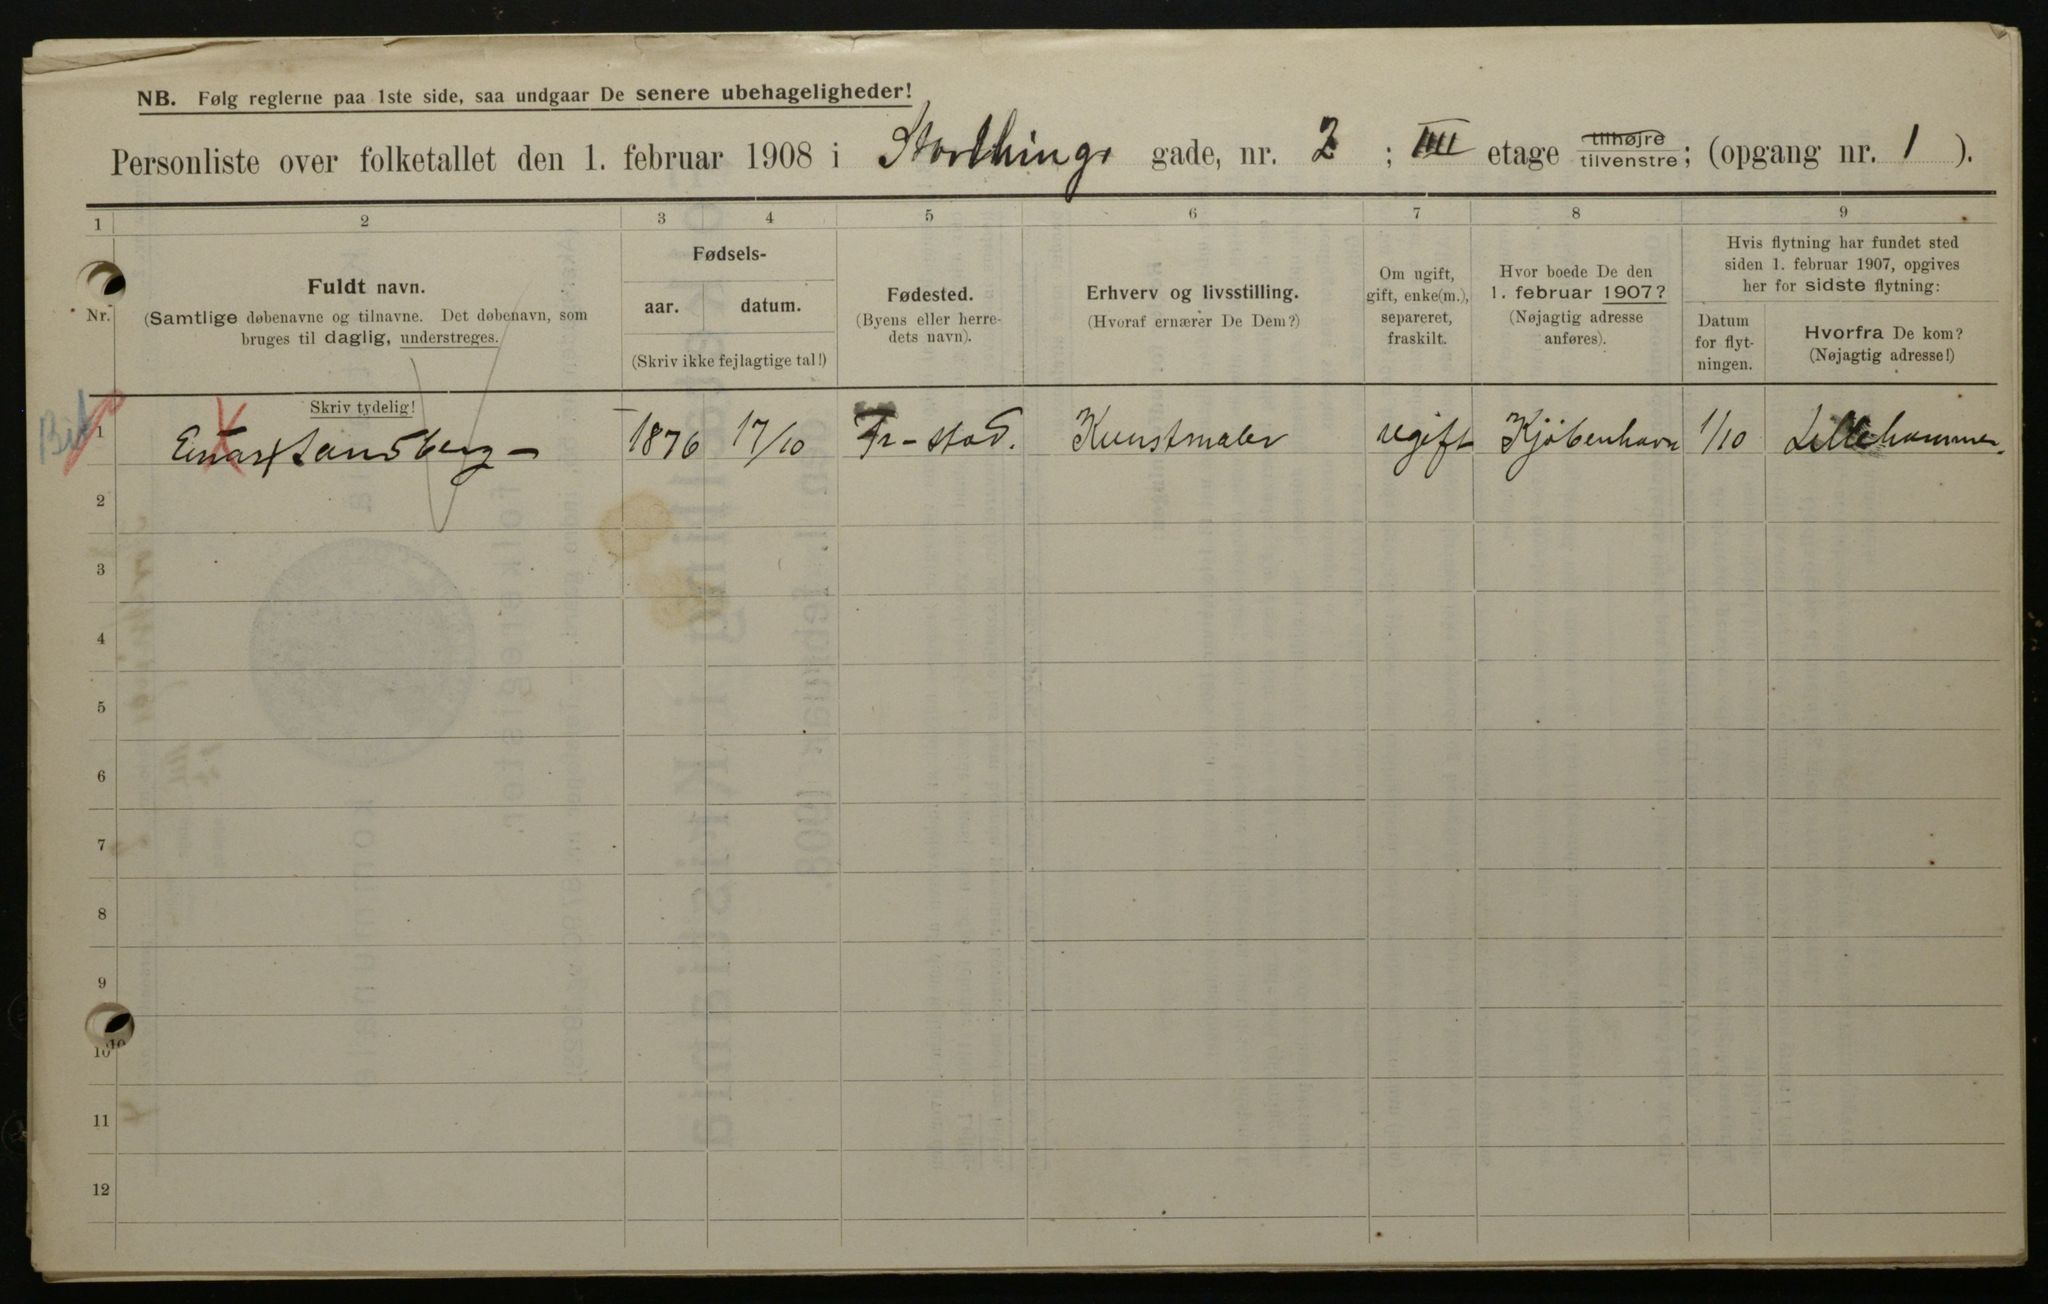 NB. Følg reglerne paa 1ste side, saa undgaar De senere ubehageligheder!
Personliste over folketallet den 1. februar 1908 i Storthings gade, nr. 2 ; IIII etage tilhøjre tilvenstre; (opgang nr. 1 ).
1 2 3 4 5 6 7 8 9
Nr.
Fuldt navn.
(Samtlige døbenavne og tilnavne. Det døbenavn, som
bruges til daglig, understreges.
Skriv tydelig!
Fødsels-
aar. datum.
(Skriv ikke fejlagtige tal!)
Fødested.
(Byens eller herre-
dets navn).
Erhverv og livsstilling.
(Hvoraf ernærer De Dem?)
Om ugift,
gift, enke(m.),
separeret,
fraskilt.
Hvor boede De den
1. februar 1907?
(Nøjagtig adresse
anføres).
Hvis flytning har fundet sted
siden 1. februar 1907, opgives
her for sidste flytning:
Datum
for flyt-
ningen.
Hvorfra De kom?
(Nøjagtig adresse!)
1 Einar Sandberg - 1876 17/10 Fr-stad. Kunstmaler ugift Kjøbenhavn 1/10 Lillehammer.
2
3
4
5
6
7
8
9
10
11
12